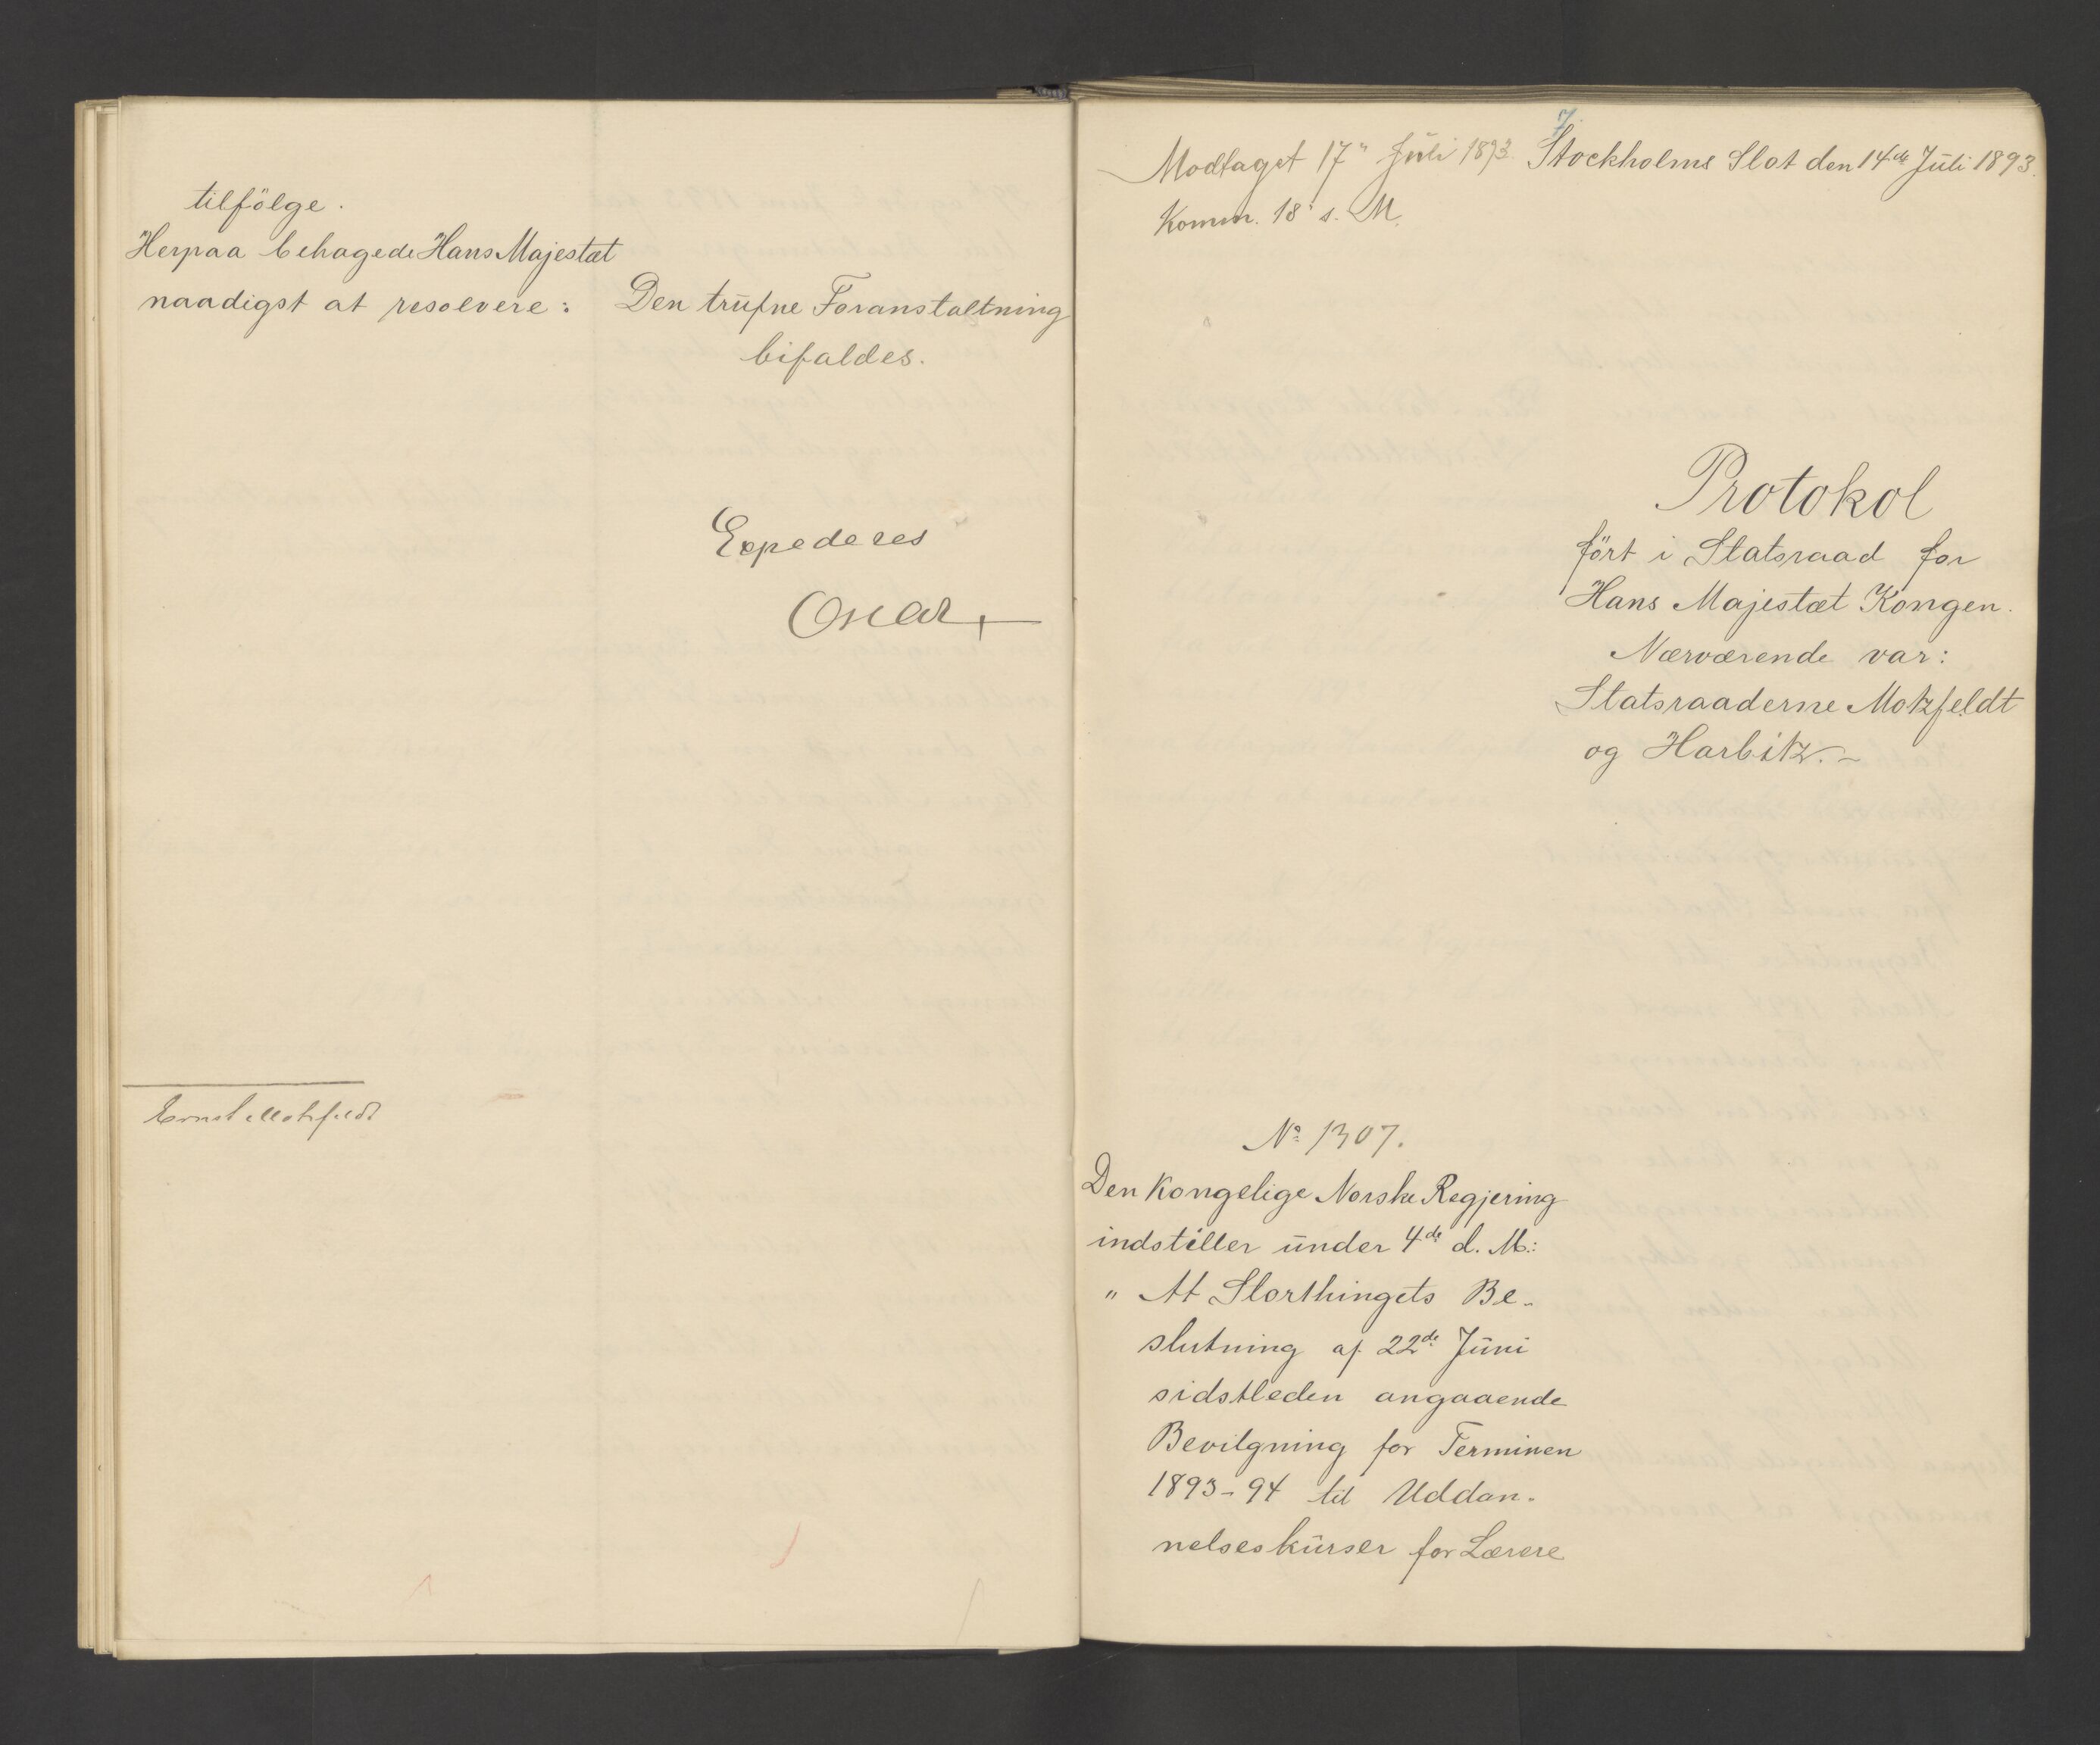 tilfölge.
Herpaa behagede Hans Majestæt
naadigst at resolvere:
Den trufne Foranstaltning
bifaldes.
Expederes
Oscar
Ernst Motzfeldt
7.
Modtaget 17" Juli 1893.
Komm. 18" s. M.
Stockholms Slot den 14de Juli 1893.
Protokol
fört i Statsraad for
Hans Majestæt Kongen.
Nærværende var:
Statsraaderne Motzfeldt
og Harbitz. –
No 1307.
Den Kongelige Norske Regjering
indstiller under 4de d. M.:
" At Storthingets Be-
slutning af 22de Juni
sidstleden angaaende
Bevilgning for Terminen
1893-94 til Uddan-
nelseskurser for Lærere